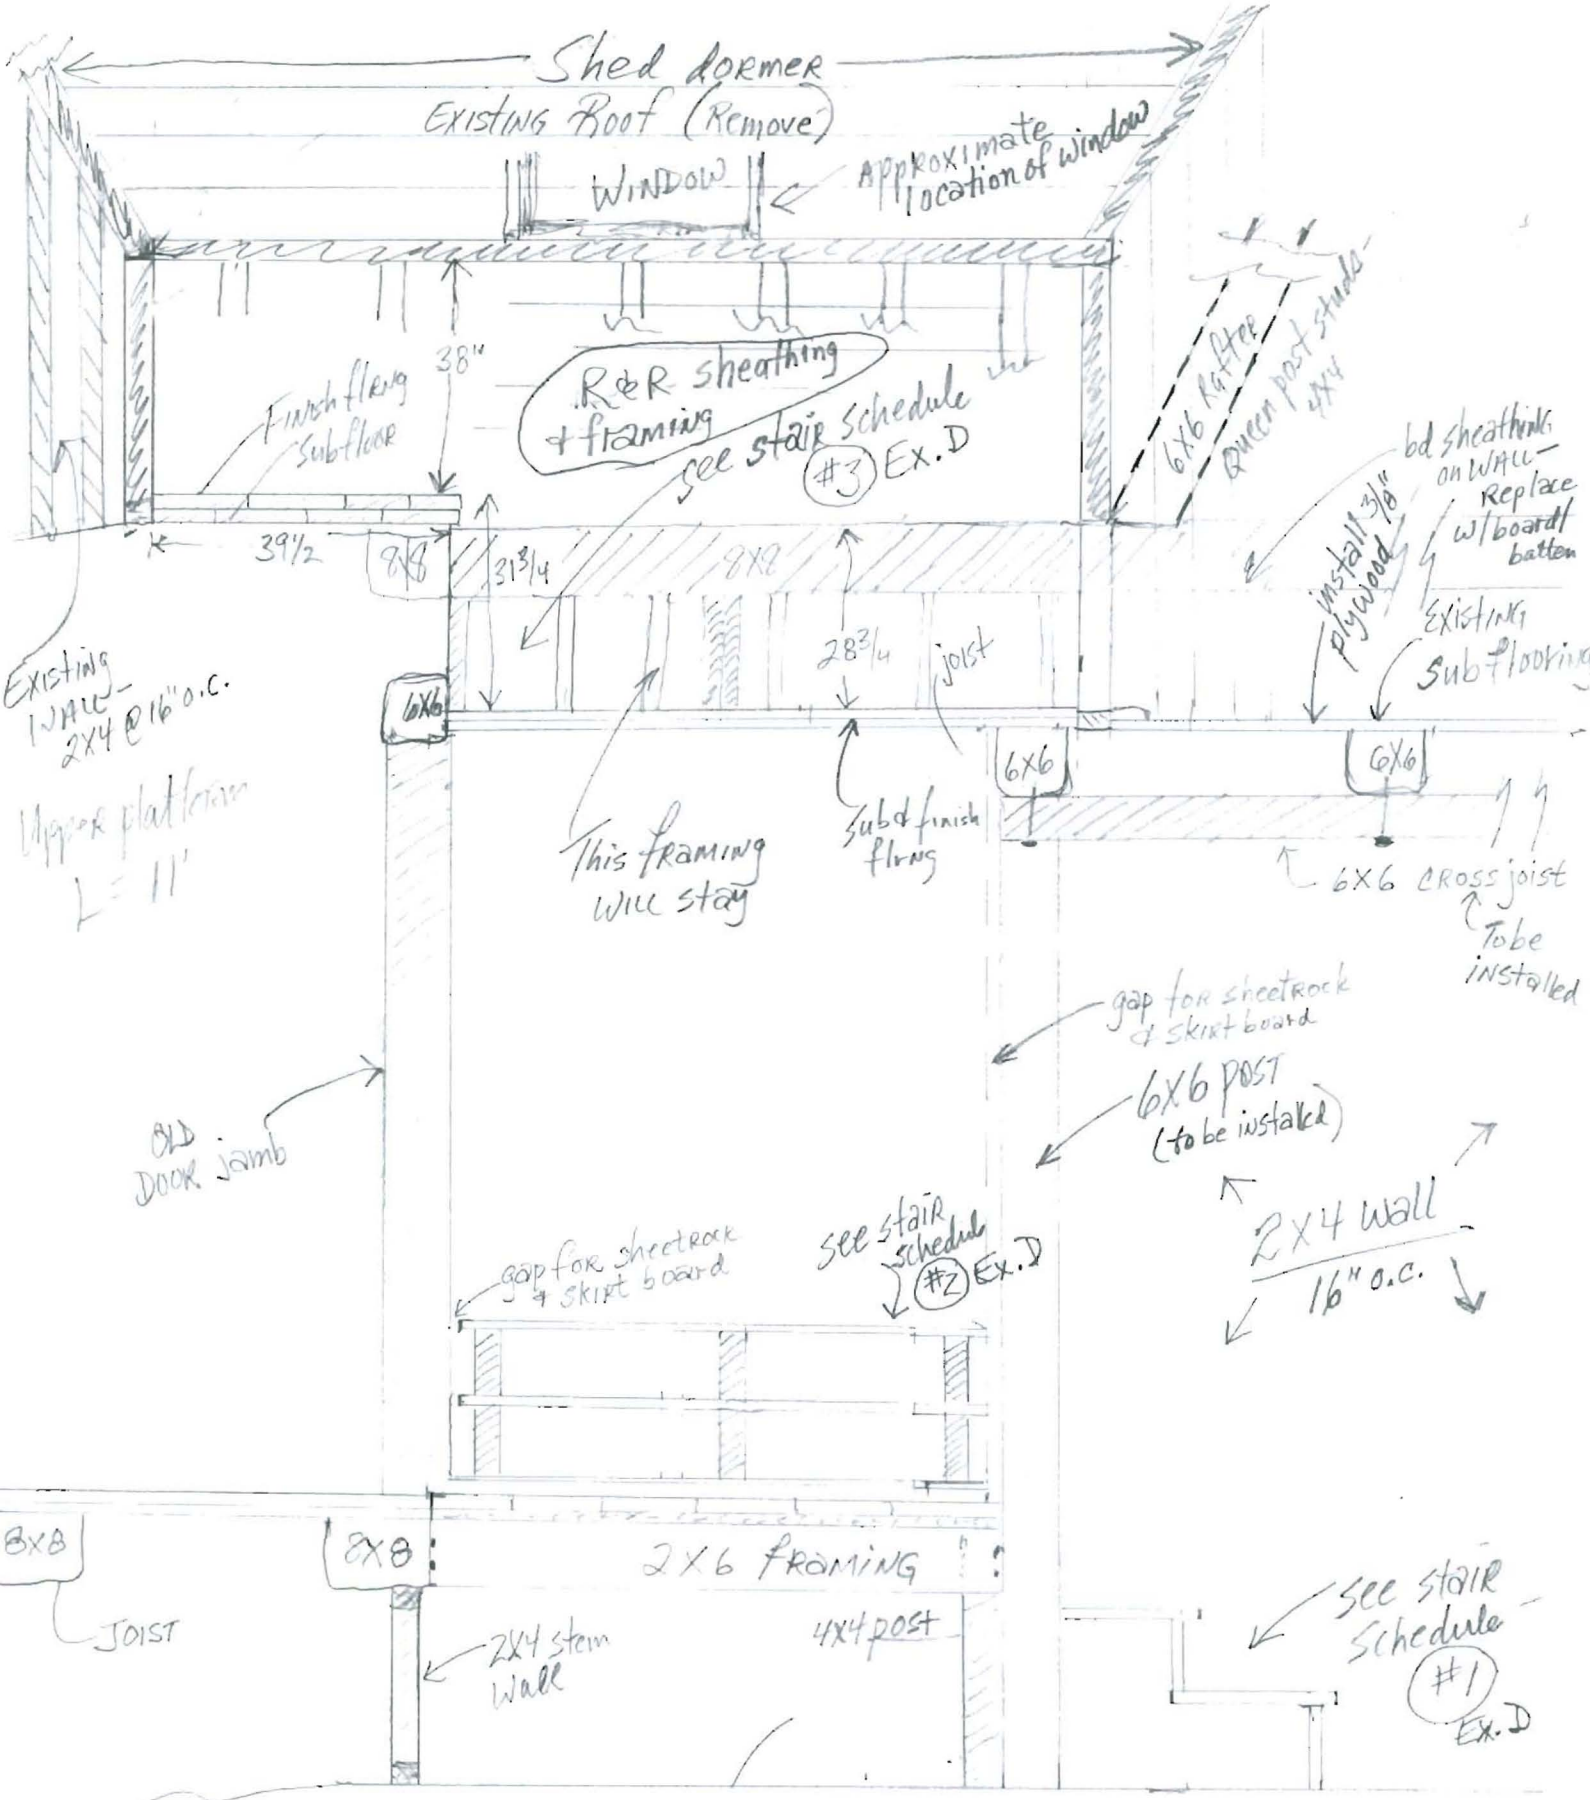 Shed dormer
Existing Roof (Remove)
Approximate
location of window
Window
38"
Finish flrng
subfloor
R&R sheathing
& framing
see stair schedule
#3 Ex. D
6X6 Rafter
Queen post studs
4X4
bd sheathing
on WALL—
Replace
w/board/
batten
install 3/8"
plywood
Existing
Subflooring
39 1/2
8X8
31 3/4
8X8
28 3/4
joist
Existing
WALL—
2X4 @ 16" o.c.
6X6
6X6
6X6
Upper platform
L = 11'
This framing
will stay
Sub & finish
flrng
6X6 cross joist
To be
installed
gap for sheetrock
& skirt board
6X6 post
(to be installed)
OLD
Door jamb
2X4 wall
16" o.c.
see stair
schedule
#2 Ex. D
gap for sheetrock
& skirt board
8X8
8X8
2X6 framing
Joist
2X4 stem
wall
4X4 post
see stair
schedule
#1
Ex. D